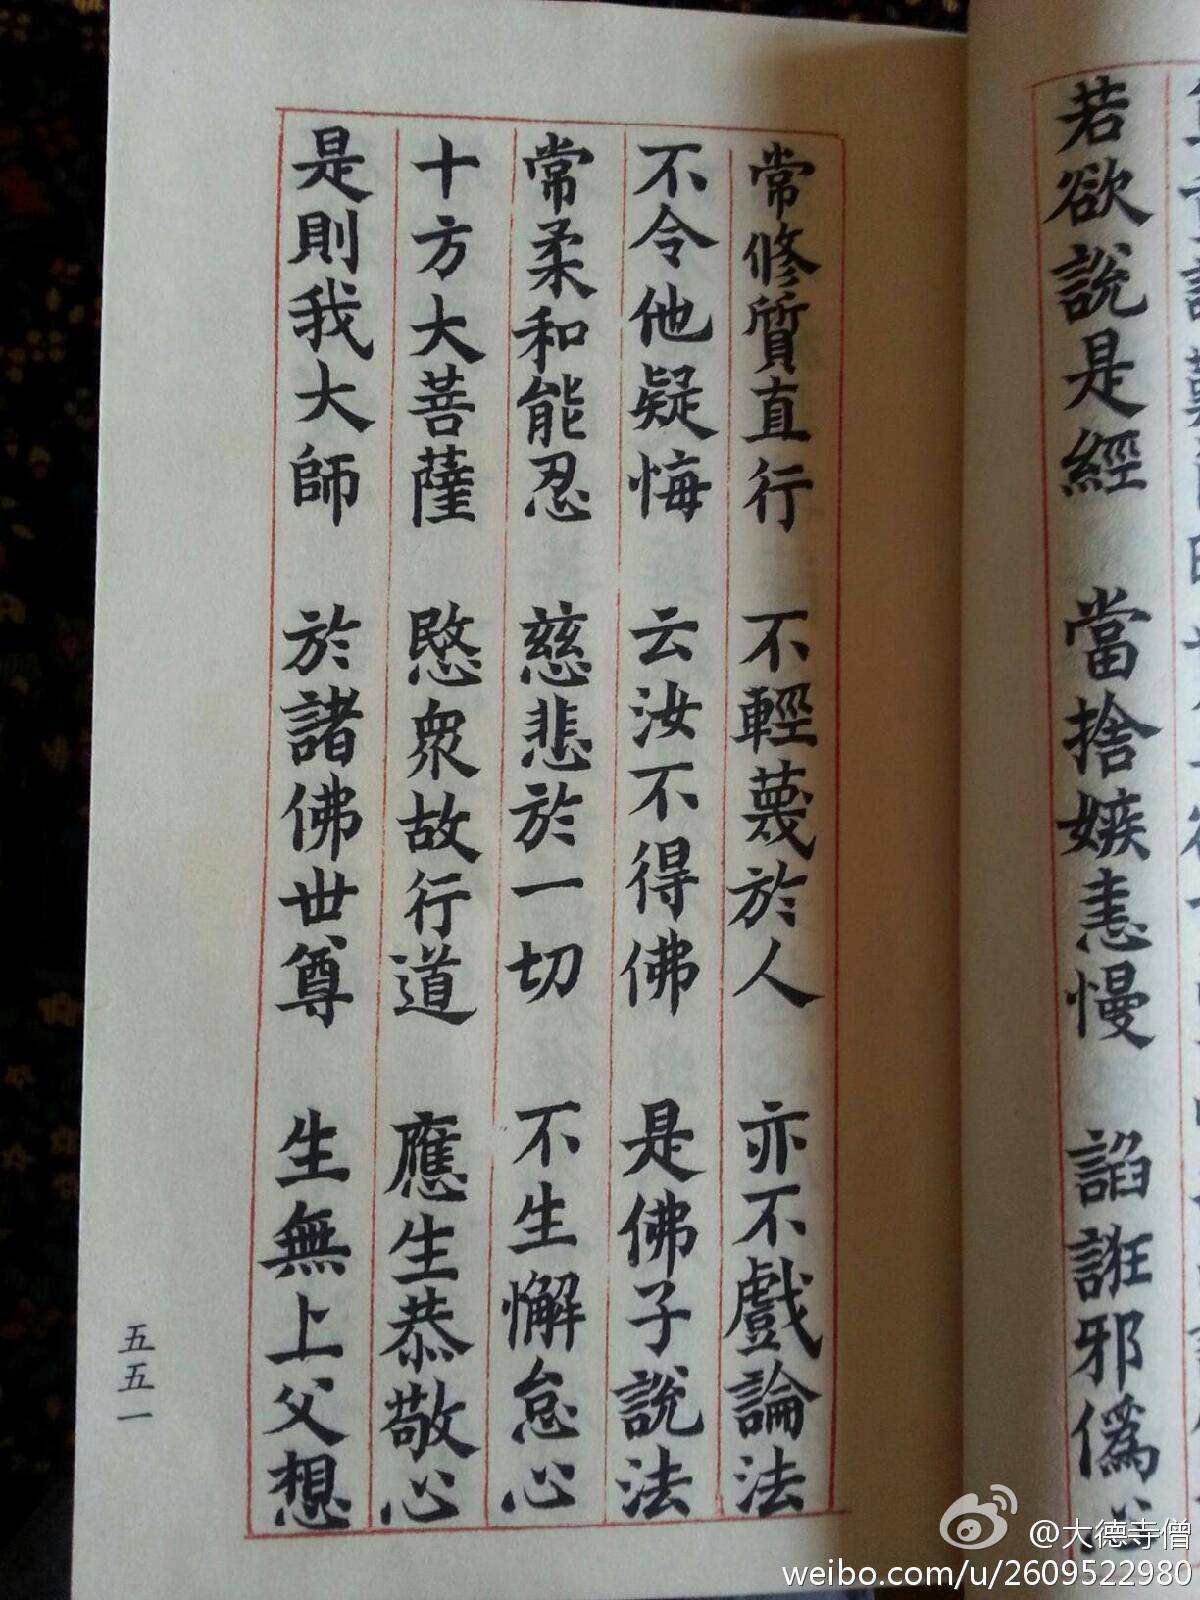 若欲說是經 當捨嫉恚慢 諂誑邪偽心
常修質直行 不輕蔑於人 亦不戲論法
不令他疑悔 云汝不得佛 是佛子說法
常柔和能忍 慈悲於一切 不生懈怠心
十方大菩薩 愍眾故行道 應生恭敬心
是則我大師 於諸佛世尊 生無上父想
五五一
@大德寺僧
weibo.com/u/2609522980